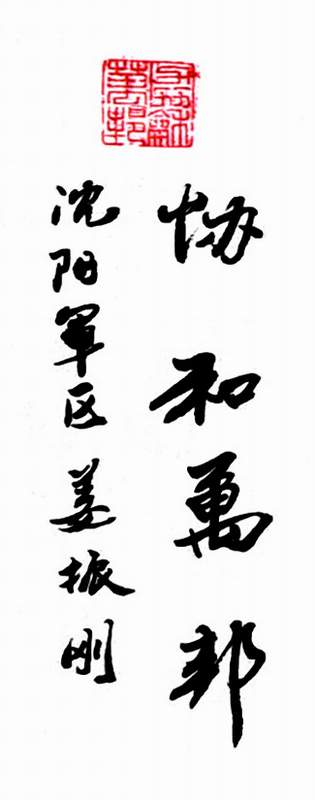 协和萬邦
沈阳军区 姜振刚